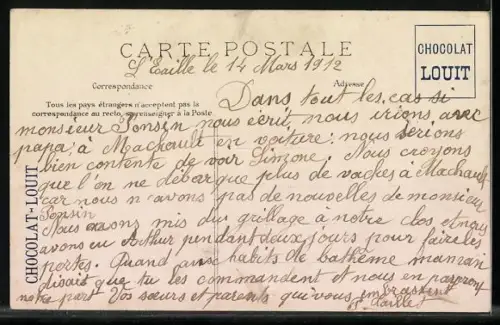 CARTE POSTALE
CHOCOLAT
LOUIT
L'Ecaille le 14 Mars 1912
Correspondance
Adresse
Tous les pays étrangers n'acceptent pas la
correspondance au recto, se renseigner à la Poste.
CHOCOLAT-LOUIT
Dans tout les cas si
monsieur Ponsin nous écrit, nous irions avec
papa, à Machault en voiture: nous serions
bien contente de voir Linzone. Nous croyons
que l'on ne débarque plus de vaches à Machault
car nous n'avons pas de nouvelles de monsieur
Ponsin
Nous avons mis du grillage à notre clos et nous
avons eu Arthur pendant deux jours pour faire les
portes. Quand aux habits de bathême maman
disait que tu les commandent et nous en
notre part Vos sœurs et parents qui vous embrassent